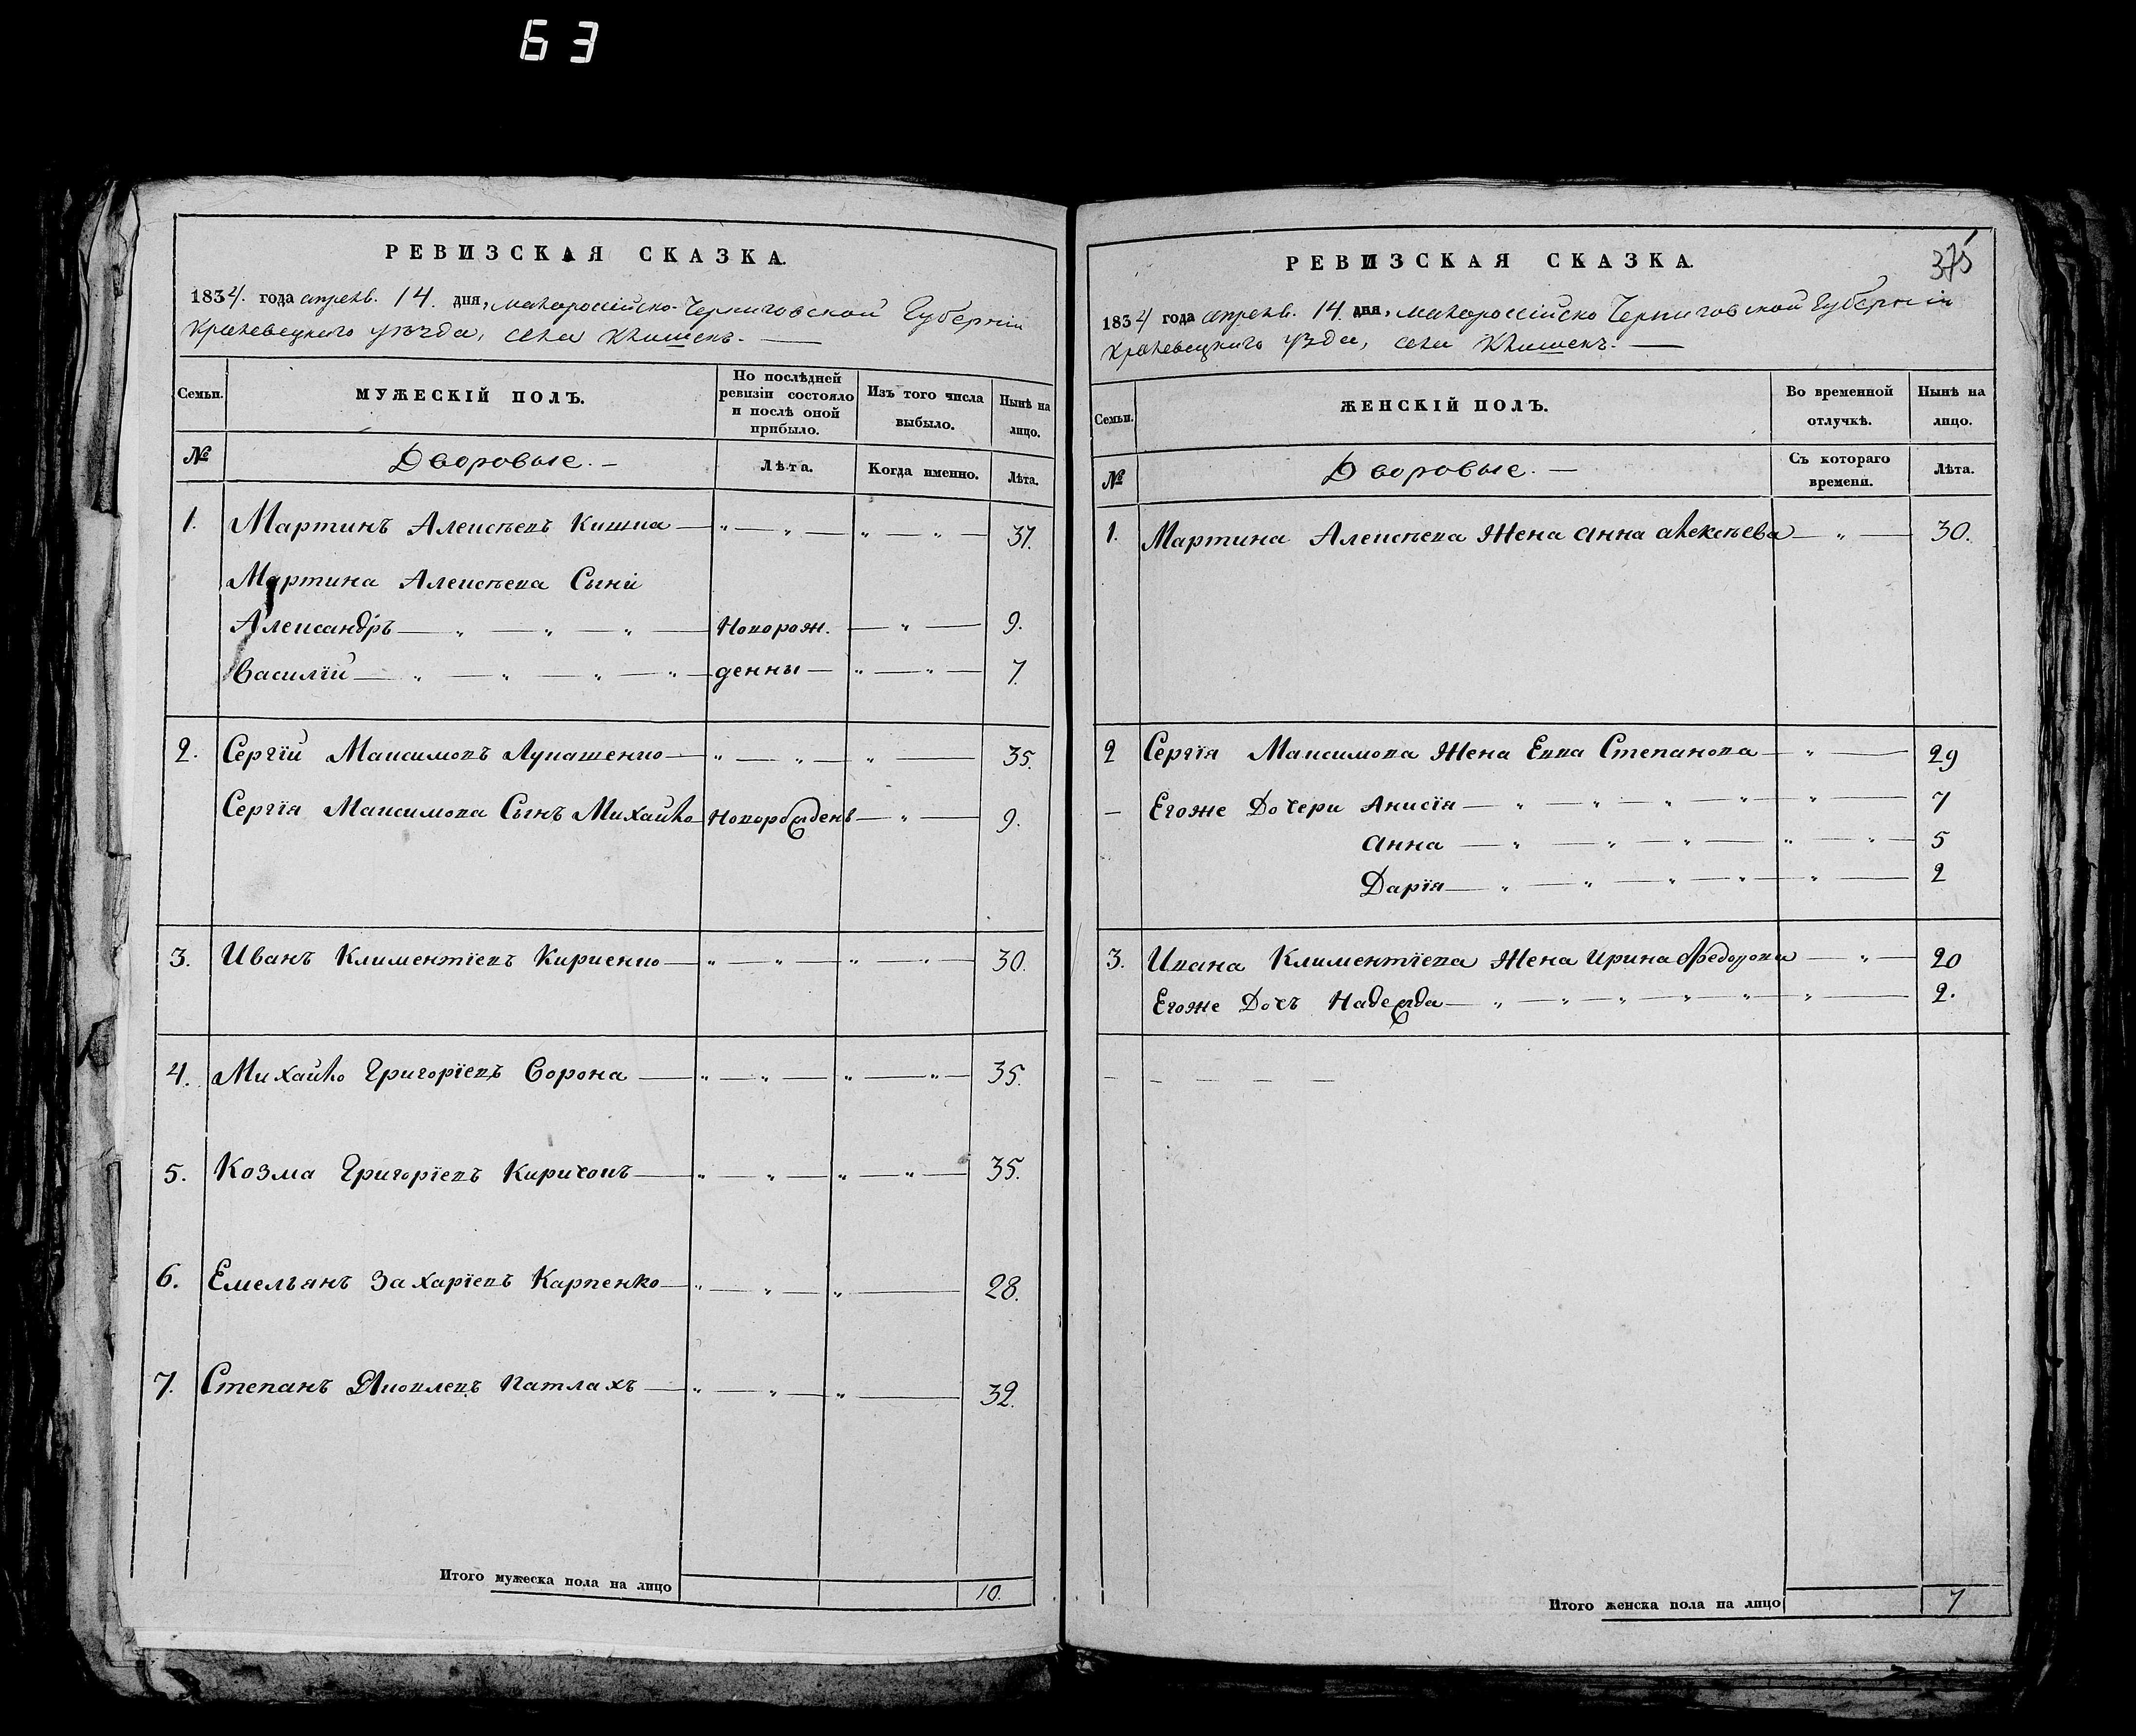 63
РЕВИЗСКАЯ СКАЗКА.
1834. года апреля. 14. дня, малороссійско-Черниговской Губерніи
Кролевецкого уѣзда, села Клишекъ. —
Семьи.
МУЖЕСКІЙ ПОЛЪ.
По послѣдней ревизіи состояло и послѣ оной прибыло.
Изъ того числа выбыло.
Нынѣ на лицо.
№
Дворовые. —
Лѣта.
Когда именно.
Лѣта.
1. Мартинъ Алексѣевъ Кишка — „ — „ — „ — „ — 37.
Мартина Алексѣева Сыни
Александръ — „ — „ — „ — Новорож. — „ — 9.
Василій — „ — „ — „ — „ — денны — „ — „ — 7.
2. Сергій Максимовъ Лукашенко — „ — „ — „ — 35.
Сергія Максимова Сынъ Михайло Новорожденъ — „ — 9.
3. Иванъ Климентіевъ Кириенко — „ — „ — „ — „ — 30.
4. Михайло Григоріевъ Сорока — „ — „ — „ — „ — 35.
5. Козма Григоріевъ Киричокъ — „ — „ — „ — „ — 35.
6. Емельянъ Захаріевъ Карпенко — „ — „ — „ — 28.
7. Степанъ Яковлевъ Патлахъ — „ — „ — „ — 32.
Итого мужеска пола на лицо 10.
375
РЕВИЗСКАЯ СКАЗКА.
1834 года апреля. 14. дня, малороссійско Черниговской Губерніи
Кролевецкого уѣзда, села Клишекъ. —
Семьи.
ЖЕНСКІЙ ПОЛЪ.
Во временной отлучкѣ.
Нынѣ на лицо.
№
Дворовые. —
Съ котораго времени.
Лѣта.
1. Мартина Алексѣева Жена Анна Алексѣева — „ — 30.
2 Сергія Максимова Жена Евва Степанова — „ — 29
— Егоже Дочери Анисія — „ — „ — „ — „ — „ — 7
Анна — „ — „ — „ — „ — „ — 5
Дарія — „ — „ — „ — „ — „ — 2
3. Ивана Климентіева Жена Ирина Федорова — „ — 20
Егоже Дочъ Надежда — „ — „ — „ — „ — „ — „ — 2.
— — — — —
Итого женска пола на лицо 7